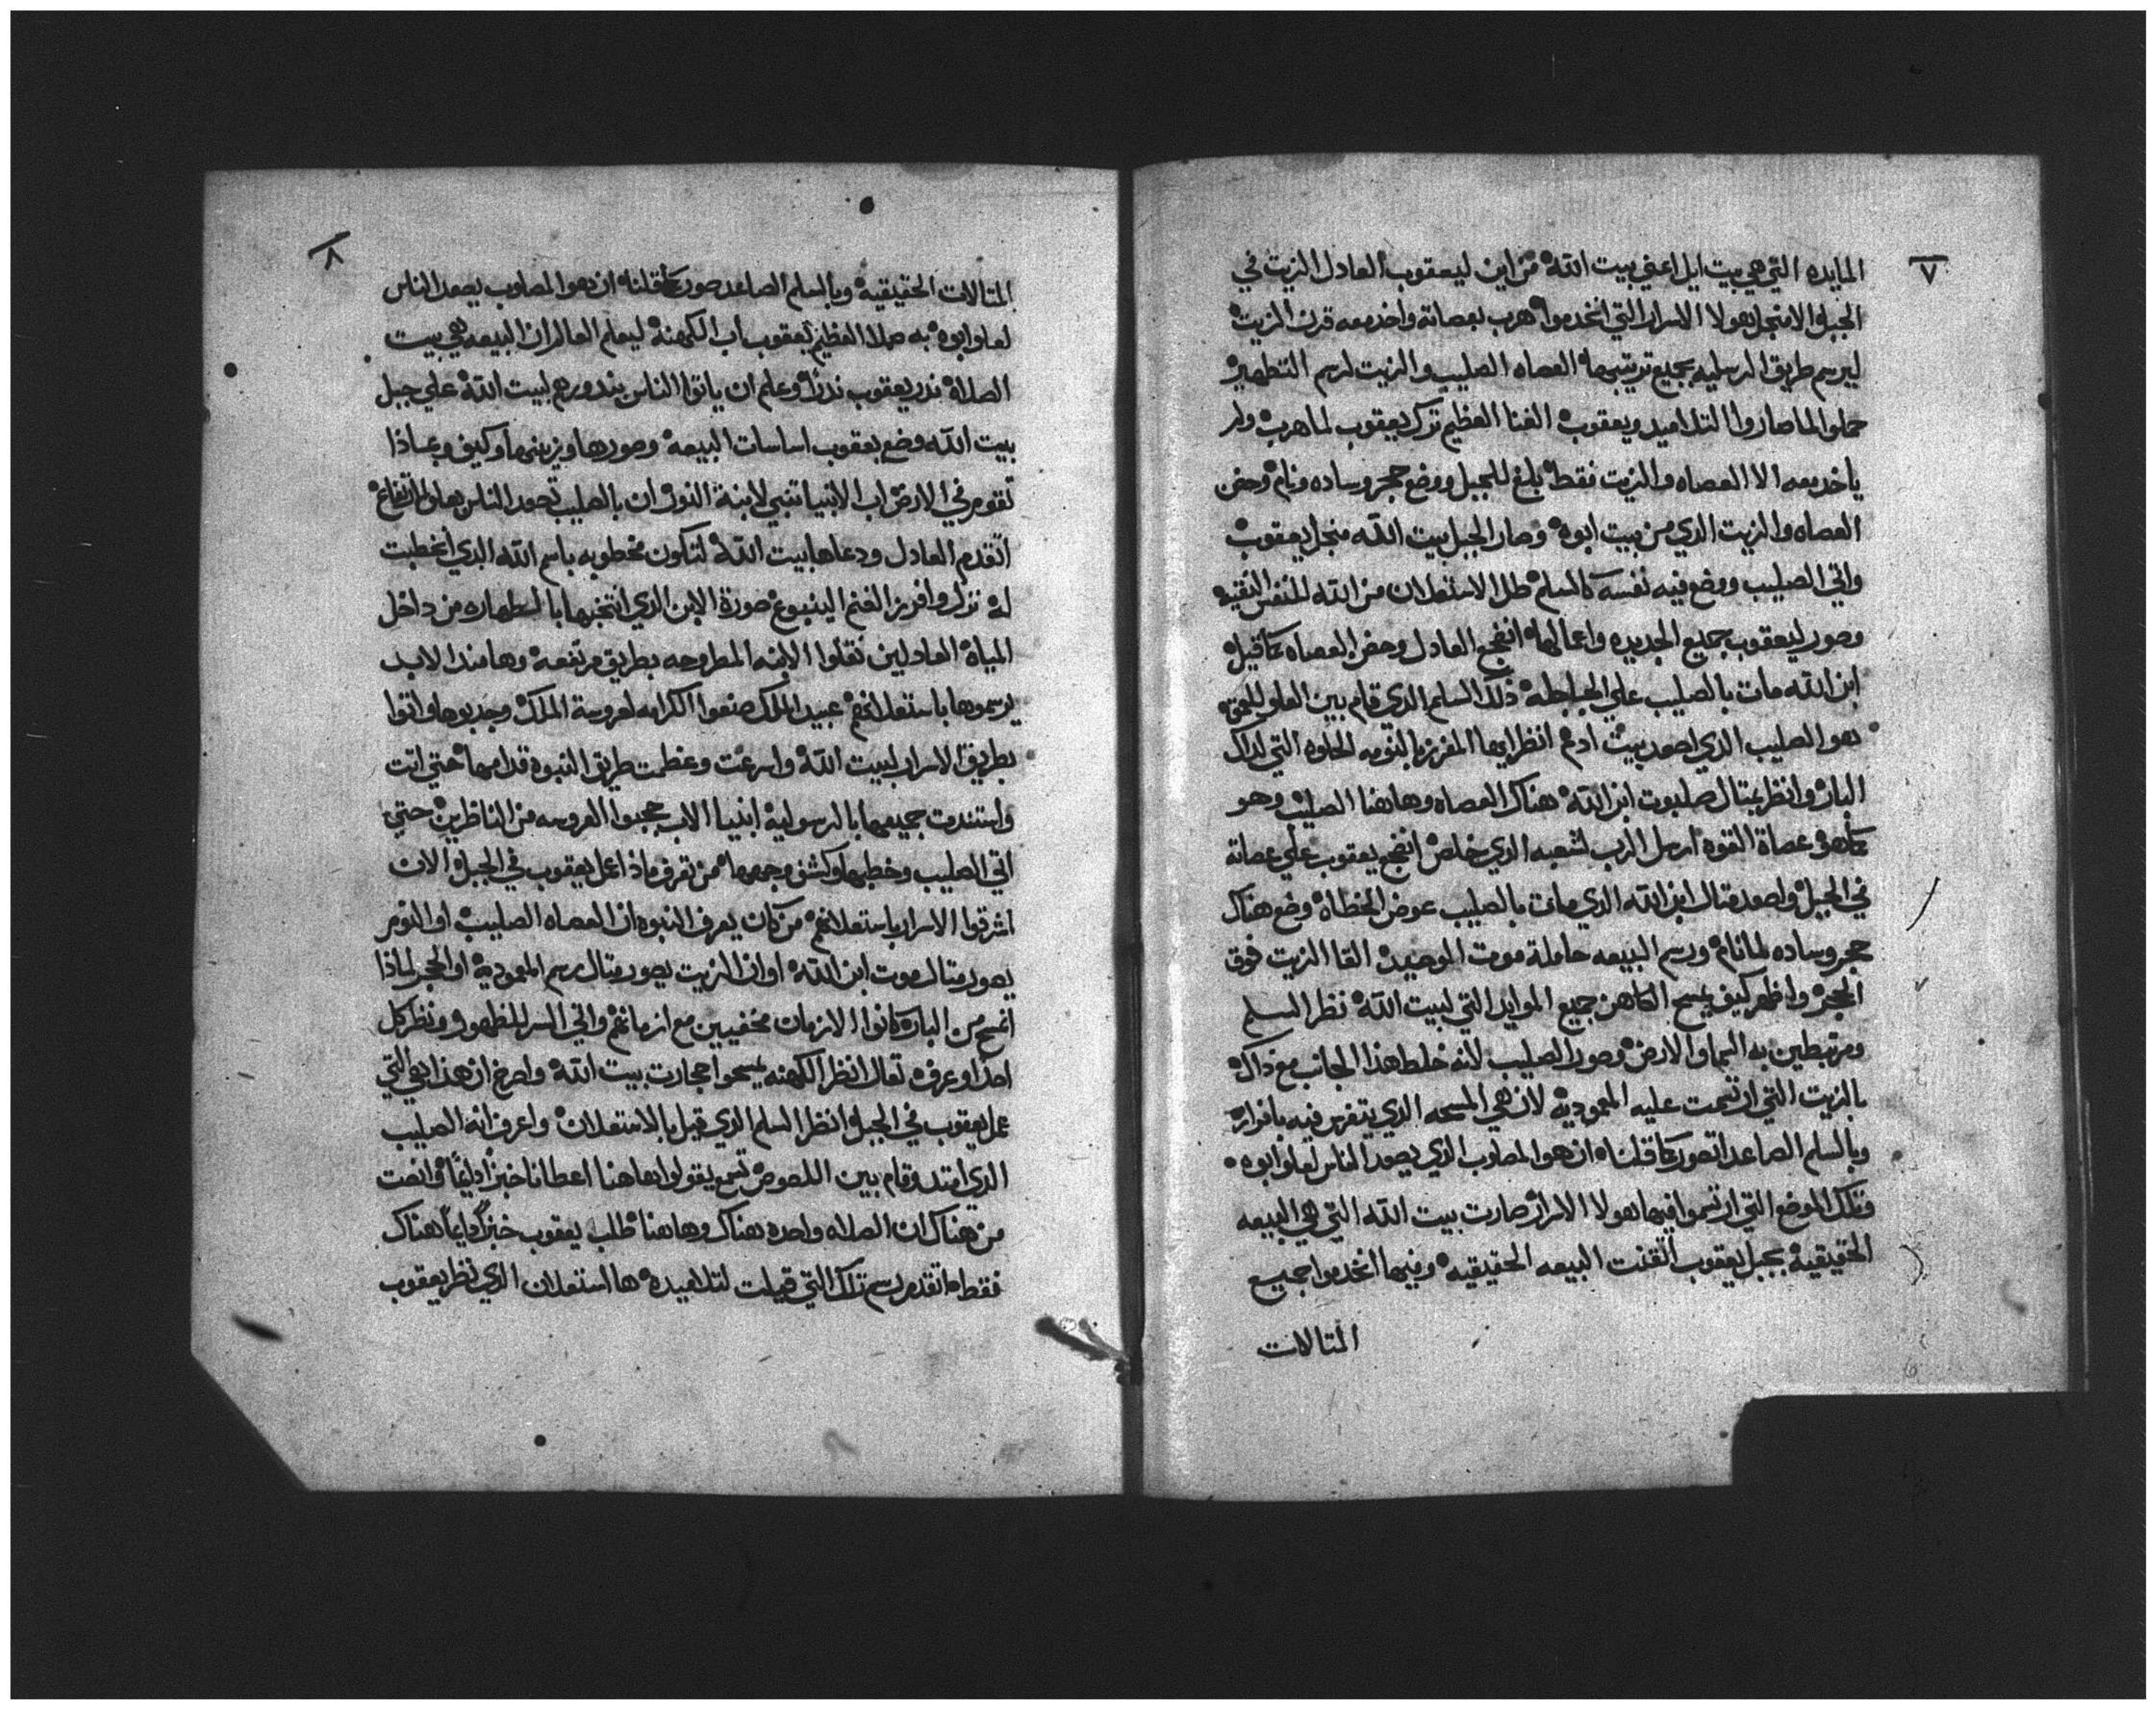 ٧
المايده التي هي بيت ايل اعني بيت الله من اين ليعقوب العادل الزيت في
الجبل الا منجل هولا الاسرار التي انخدموا هرب بعصاته واخذ معه قرن الزيت
ليرسم طريق الرسليه بجميع ترتيبها العصاه الصليب والزيت لرسم التطهير
حملوا لما صاروا التلاميد ويعقوب الغنا العظيم ترك يعقوب لما هرب ولم
ياخد معه الا العصاه والزيت فقط بلغ للجبل ووضع حجر وساده ونام وحضن
العصاه والزيت الدي من بيت ابوه وصار الجبل بيت الله منجل يعقوب
واتي الصليب ووضع فيه نفسه كالسلم طلل الاستعلان من الله للنفس النقيه
وصور ليعقوب جميع الجديده واعمالها انضجع العادل وحضن العصاه كما قيل
ابن الله مات بالصليب علي الجلجله ذلك السلم الدي قام بين العلو للعمق
هو الصليب الدي اصعد بيت ادم انظر ايها المفرز بالنومه الحلوه التي لداك
البار وانظر بمتال صلبوت ابن الله هناك العصاه وهاهنا الصليب وهو
كله هو عصاة القوه ارسل الرب لشعبه الدي خلص انضجع يعقوب علي عصاته
في الجبل واصعد متال ابن الله الدي مات بالصليب عوض الخطاه وضع هناك
حجر وساده لما نام ورسم البيعه حاملة موت الوحيد القا الزيت فوق
الحجر واظهر كيف يمسح الكاهن جميع الموايد التي لبيت الله نظر السلم
ومرتبطين به السما والارض وصور الصليب لانه خلط هذا الجانب مع ذاك
بالزيت التي ارتسمت عليه المعموديه لان هي المسحه الدي يتفرس فيه بافراز
وبالسلم الصاعد اتصور كما قلناه ان هو المصلوب الدي يصعد الناس لعلو ابوه
وتلك الموضع التي ارتسموا فيها هولا الاسرار صارت بيت الله التي هي البيعه
الحقيقيه بجبل يعقوب اتقنت البيعه الحقيقيه وفيها انخدموا جميع
المتالات
٨
المتالات الحقيقيه وبالسلم الصاعد صور كما قلناه ان هو المصلوب يصعد الناس
لعلو ابوه به صلا العظيم يعقوب اب الكهنه ليعلم العالم ان البيعه هي بيت
الصلاه ندر يعقوب ندرا وعلم ان ياتوا الناس بندورهم لبيت الله علي جبل
بيت الله وضع يعقوب اساسات البيعه وصورها وزينها وكيف وبماذا
تقوم في الارض اب الانبيا تنبي لابنة النور ان بالصليب تصعد الناس بعلو الارتفاع
اتقدم العادل ودعاها بيت الله لتكون مخطوبه باسم الله الدي انخطبت
له نزل وافرز الغنم الينبوع صورة الابن الدي انتخبها بالطهاره من داخل
المياه العادلين نقلوا الابنه المطروحه بطريق مرتفعه وها مند الابد
يرسموها باستعلانهم عبيد الملك صنعوا الكرامه لعروسة الملك وجدبوها واتوا
بطريق الاسرار لبيت الله واسرعت وعظمت طريق النبوه قدامها حتي اتت
واستندت جميعها بالرسوليه انبيا الاب حجبوا العروسه من الناظرين حتي
اتي الصليب وخطبها وكشف وجهها من يعرف ماذا عمل يعقوب في الجبل الان
اشرقوا الاسرار باستعلانهم من كان يعرف النبوه ان العصاه الصليب او النوم
يصور متال موت ابن الله او ان الزيت يصور متال رسم المعموديه او الحجر لماذا
انمسح من البار كانوا الازمان مخفيين مع ازمانهم واتي السر للظهور ونظر كل
احدا وعرفه تعال انظر الكهنه يمسحوا حجارت بيت الله واصرخ ان هذا هي التي
عمل يعقوب في الجبل وانظر السلم الدي قيل بالاستعلان واعرف انه الصليب
الدي امتد وقام بين اللصوص تسمع يقولوا هاهنا اعطانا خبزا دايما وانصت
من هناك ان الصلاه واحده هناك وهاهنا طلب يعقوب خبزا دايما هناك
فقط ما تقدم رسم تلك التي قيلت لتلاميده ها استعلان الدي نظر يعقوب